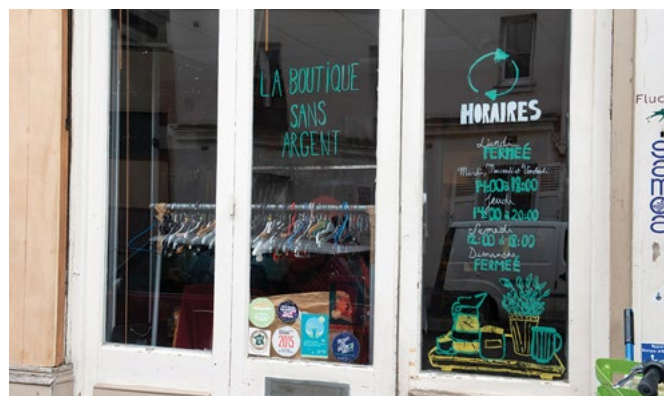 LA BOUTIQUE
SANS
ARGENT
HORAIRES
Lundi
FERMEÉ
Mardi, Mercredi et Vendredi
14:00 à 18:00
Jeudi
14:00 à 20:00
Samedi
12:00 à 18:00
Dimanche
FERMEÉ
2015
Fluc